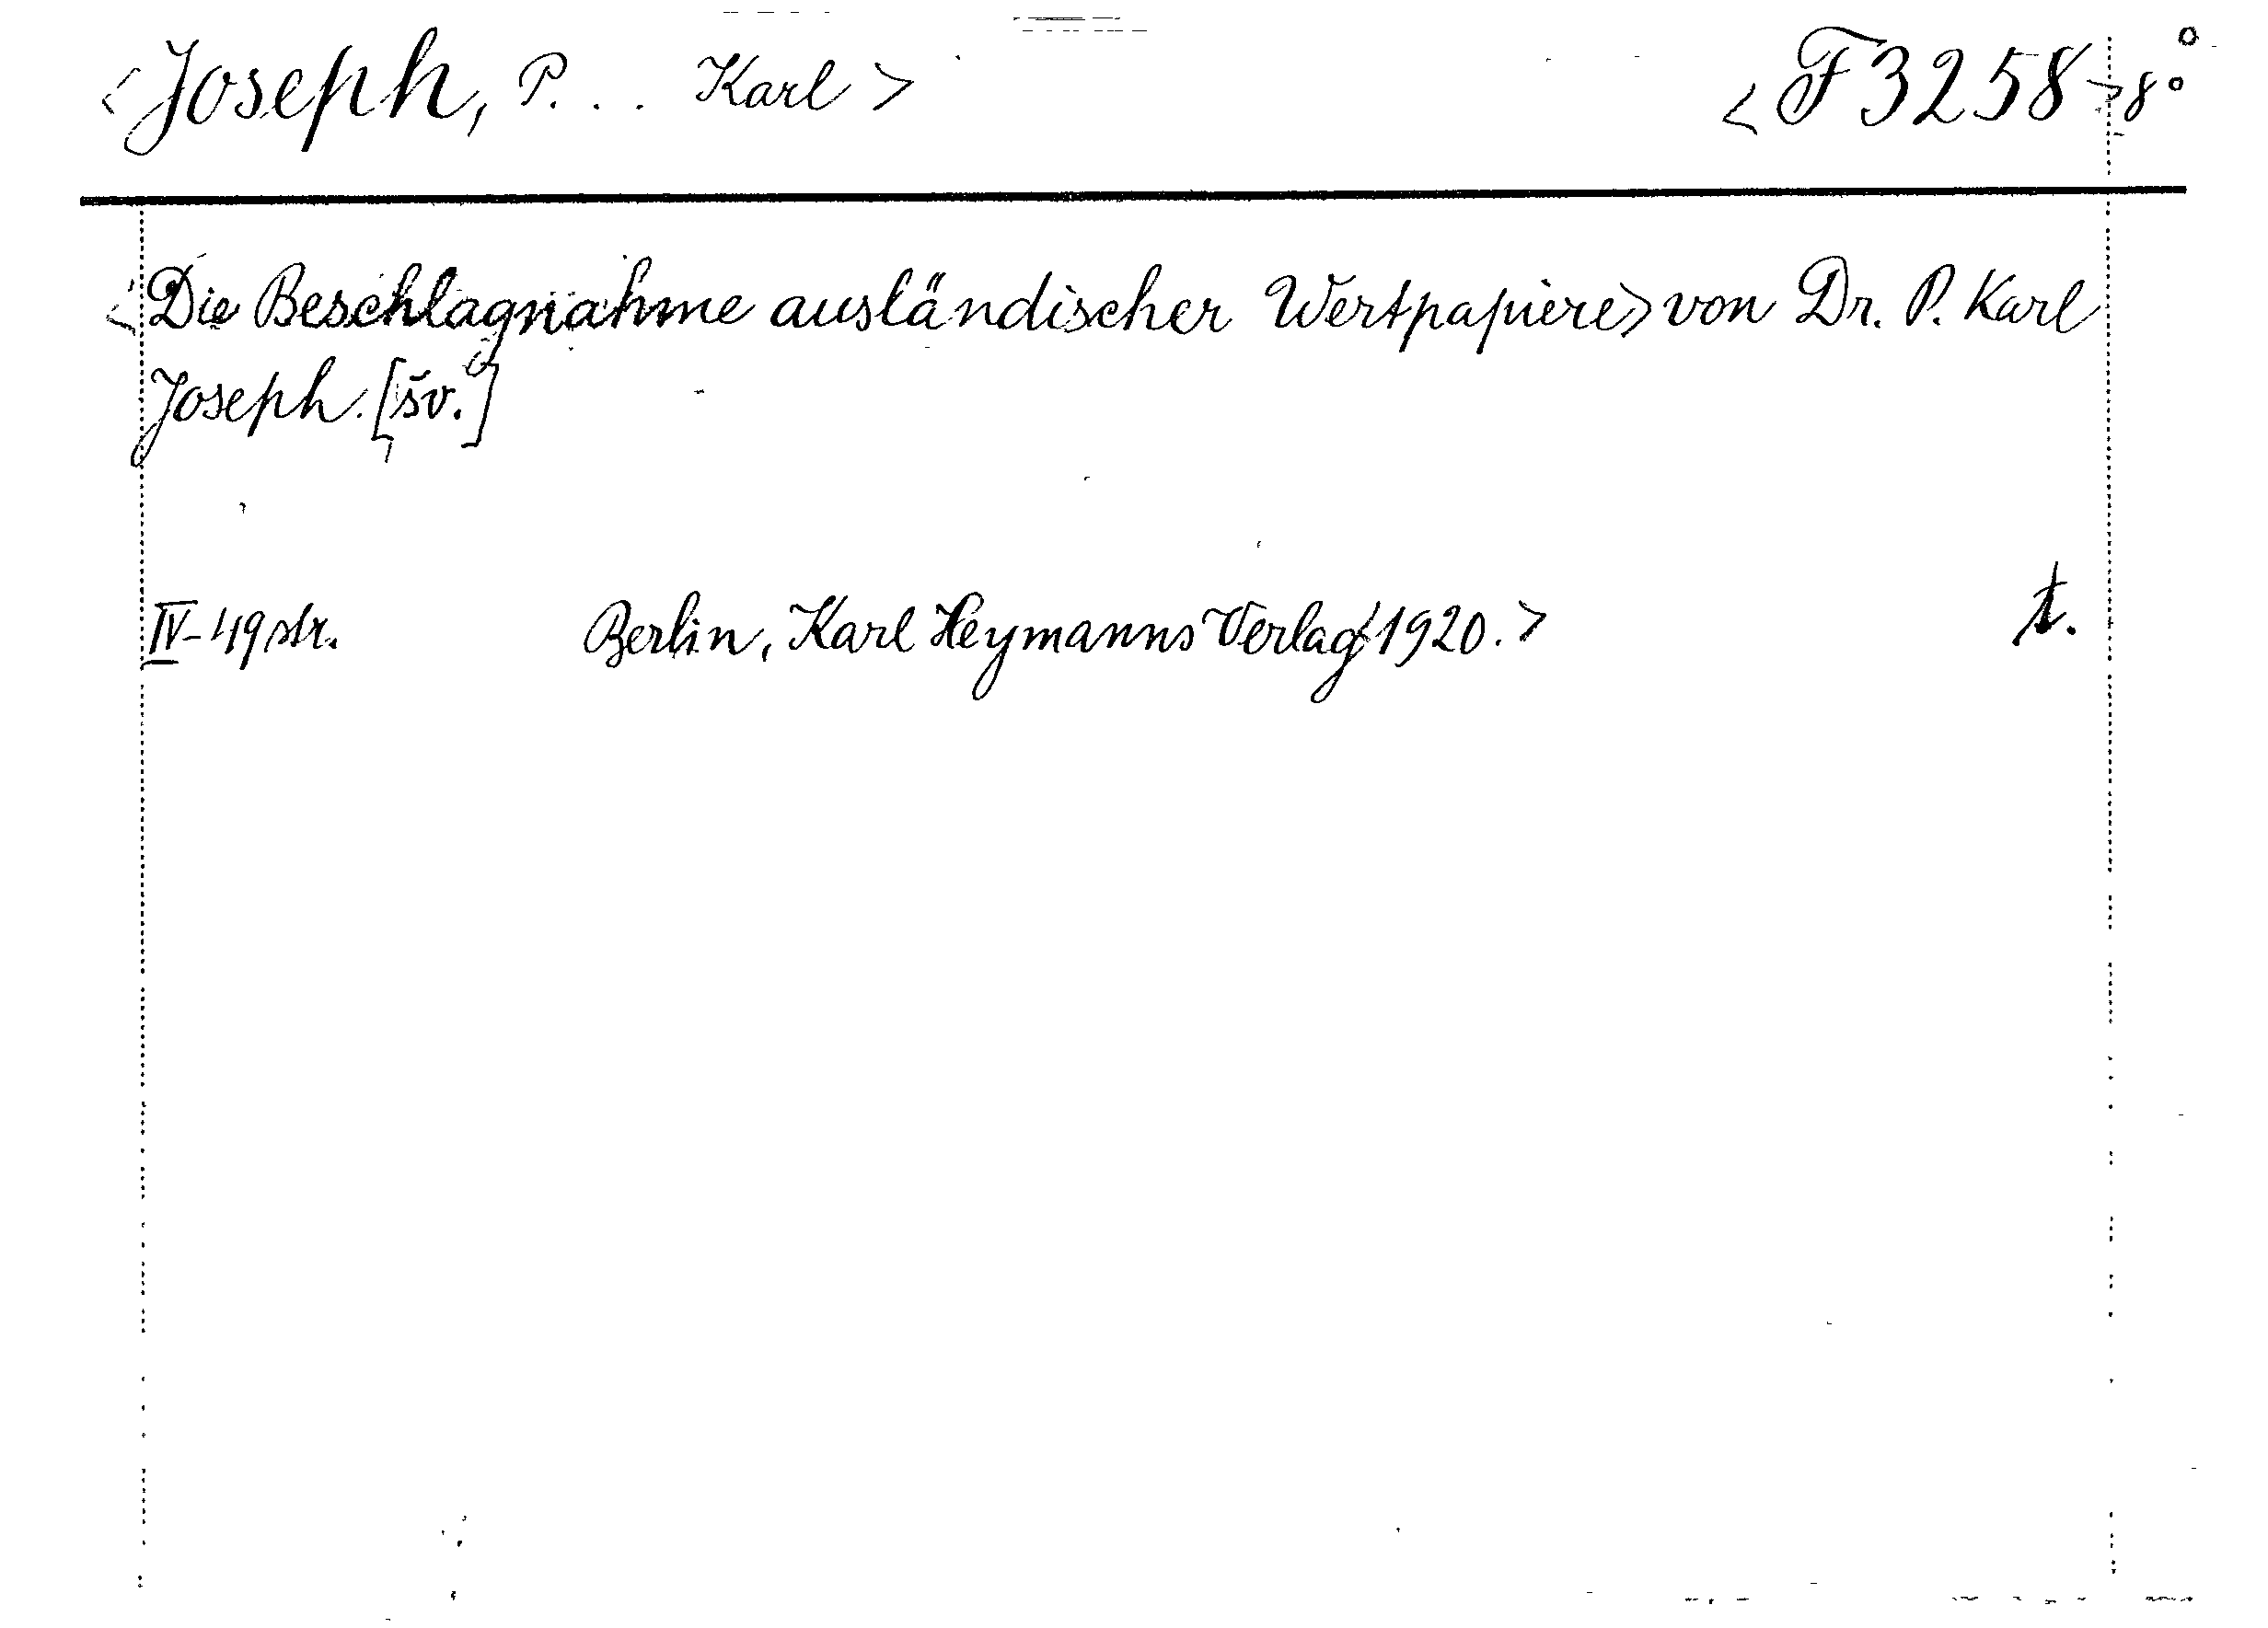 <Joseph, P. . . Karl> <F 3258> 8°
<Die Beschlagnahme ausländischer Wertpapiere> von Dr. P. Karl
Joseph. [šv.]
IV-49 str. Berlin, Karl Heymanns Verlag <1920.> t.